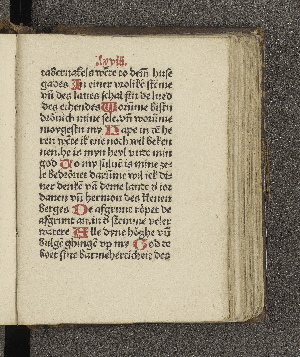 .lxviii.
tabernakels wēte to dem huse
gades In einer vroliken stēme
vñ des laues schal ſin de lued
des etenden Worūme bistu
drouich mine sele. vñ worūme
moygestu my Hape in eē he
ren wēte ik ene noch wil beken
nen. he is myn heyl vnde min
god To my sulue is mine ze
le bedrouet darūme wil ik di
ner denkē vā deme lande d ior
danen vñ hermon des klenen
berges De afgrunt roper de
afgrunt an. in d stemme veler
watere Alle dyne hoghe vñ
bulgē ghingē vp my God te
boet sine barmeherticheit des